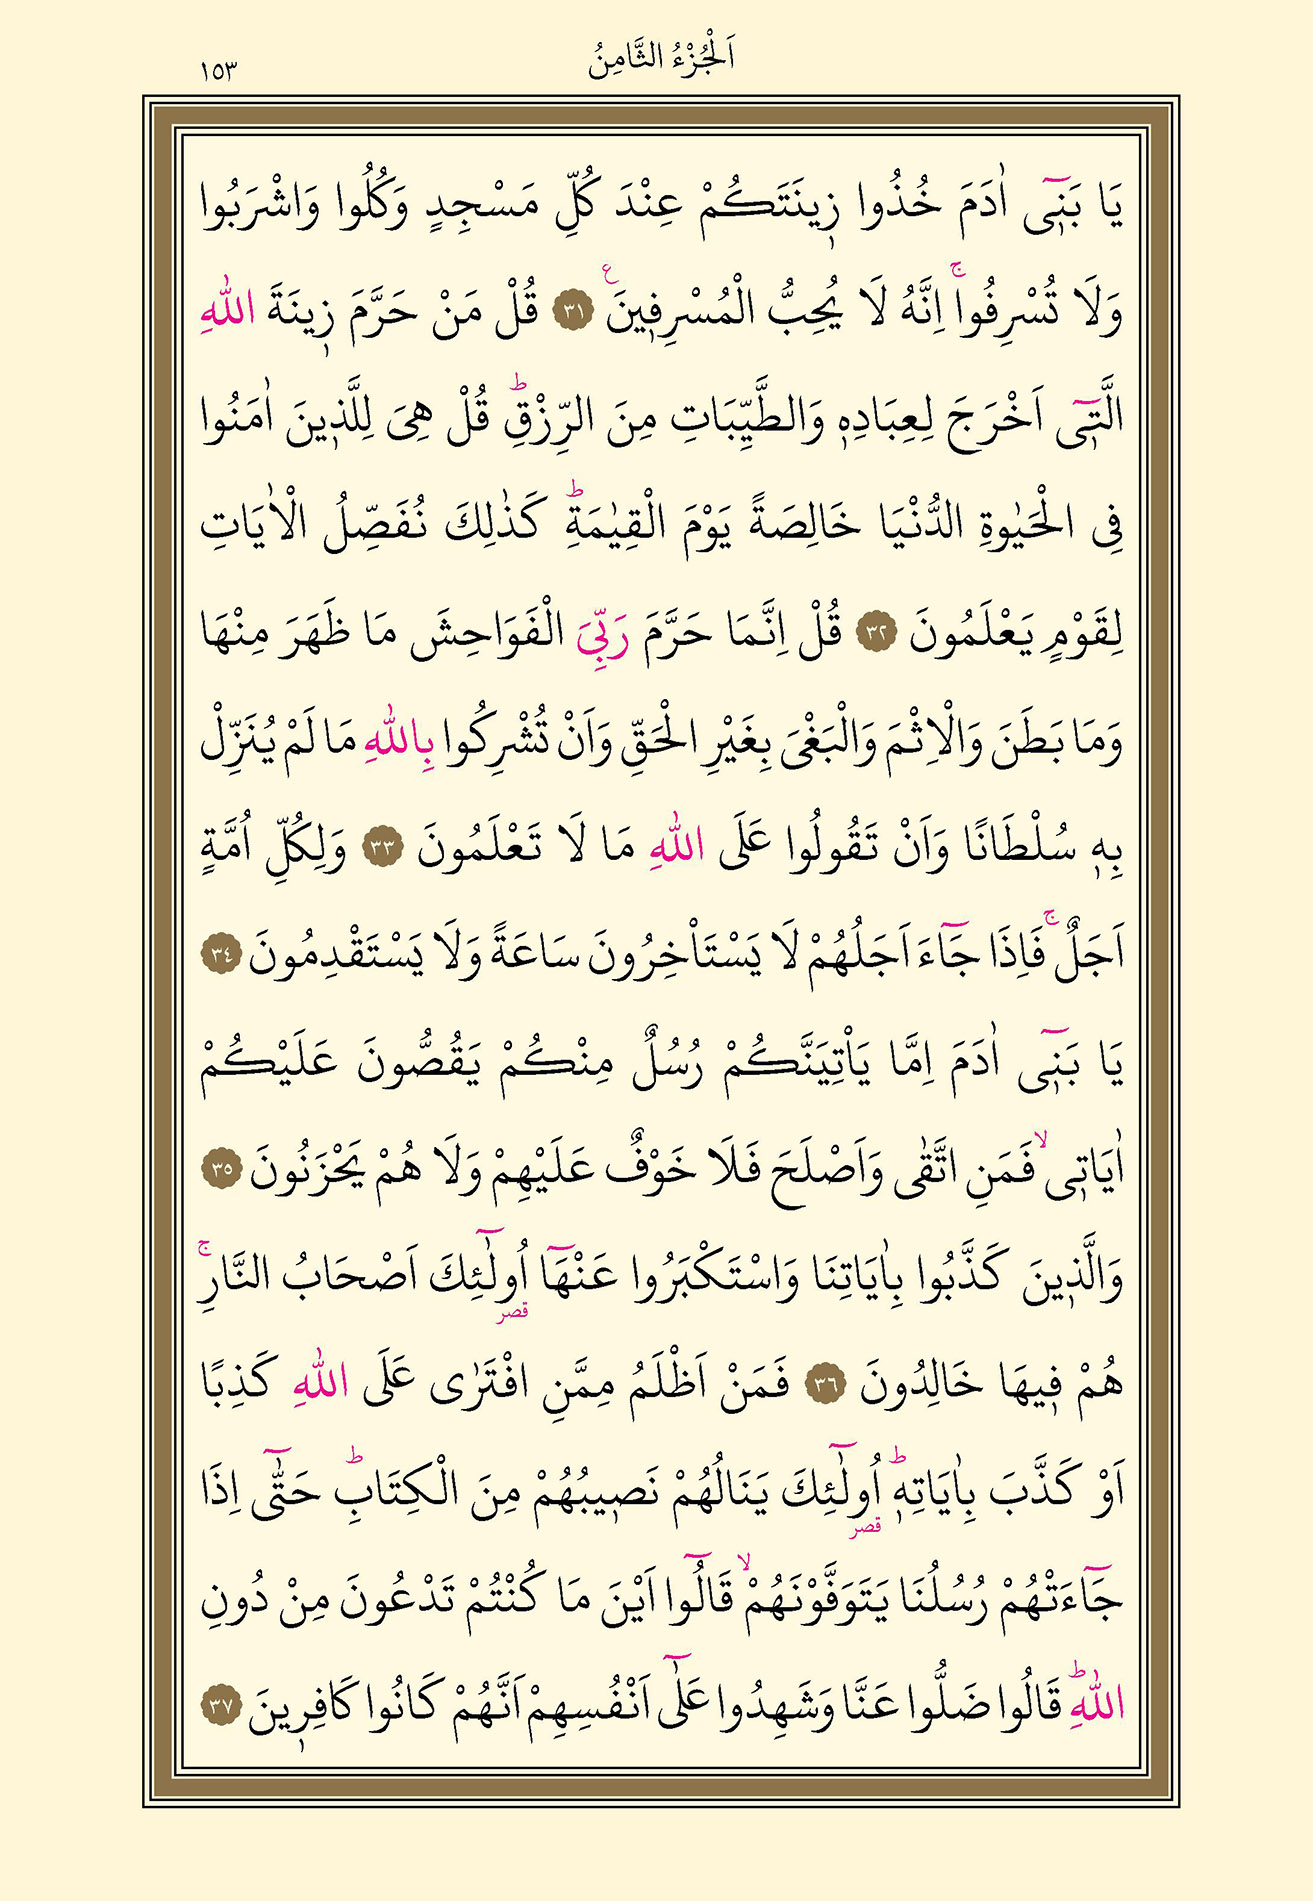 اَلْجُزْءُ الثَّامِنُ ١٥٣
يَا بَنٖٓى اٰدَمَ خُذُوا زٖينَتَكُمْ عِنْدَ كُلِّ مَسْجِدٍ وَكُلُوا وَاشْرَبُوا
وَلَا تُسْرِفُواۚ اِنَّهُ لَا يُحِبُّ الْمُسْرِفٖينَ ع ٣١ قُلْ مَنْ حَرَّمَ زٖينَةَ اللّٰهِ
الَّتٖٓى اَخْرَجَ لِعِبَادِهٖ وَالطَّيِّبَاتِ مِنَ الرِّزْقِؕ قُلْ هِىَ لِلَّذٖينَ اٰمَنُوا
فِى الْحَيٰوةِ الدُّنْيَا خَالِصَةً يَوْمَ الْقِيٰمَةِؕ كَذٰلِكَ نُفَصِّلُ الْاٰيَاتِ
لِقَوْمٍ يَعْلَمُونَ ٣٢ قُلْ اِنَّمَا حَرَّمَ رَبِّىَ الْفَوَاحِشَ مَا ظَهَرَ مِنْهَا
وَمَا بَطَنَ وَالْاِثْمَ وَالْبَغْىَ بِغَيْرِ الْحَقِّ وَاَنْ تُشْرِكُوا بِاللّٰهِ مَا لَمْ يُنَزِّلْ
بِهٖ سُلْطَانًا وَاَنْ تَقُولُوا عَلَى اللّٰهِ مَا لَا تَعْلَمُونَ ٣٣ وَلِكُلِّ اُمَّةٍ
اَجَلٌۚ فَاِذَا جَٓاءَ اَجَلُهُمْ لَا يَسْتَاْخِرُونَ سَاعَةً وَلَا يَسْتَقْدِمُونَ ٣٤
يَا بَنٖٓى اٰدَمَ اِمَّا يَاْتِيَنَّكُمْ رُسُلٌ مِنْكُمْ يَقُصُّونَ عَلَيْكُمْ
اٰيَاتٖىۙ فَمَنِ اتَّقٰى وَاَصْلَحَ فَلَا خَوْفٌ عَلَيْهِمْ وَلَا هُمْ يَحْزَنُونَ ٣٥
وَالَّذٖينَ كَذَّبُوا بِاٰيَاتِنَا وَاسْتَكْبَرُوا عَنْهَٓا اُولٰٓئِكَ قصر اَصْحَابُ النَّارِۚ
هُمْ فٖيهَا خَالِدُونَ ٣٦ فَمَنْ اَظْلَمُ مِمَّنِ افْتَرٰى عَلَى اللّٰهِ كَذِبًا
اَوْ كَذَّبَ بِاٰيَاتِهٖؕ اُولٰٓئِكَ قصر يَنَالُهُمْ نَصٖيبُهُمْ مِنَ الْكِتَابِؕ حَتّٰٓى اِذَا
جَٓاءَتْهُمْ رُسُلُنَا يَتَوَفَّوْنَهُمْۙ قَالُٓوا اَيْنَ مَا كُنْتُمْ تَدْعُونَ مِنْ دُونِ
اللّٰهِؕ قَالُوا ضَلُّوا عَنَّا وَشَهِدُوا عَلٰٓى اَنْفُسِهِمْ اَنَّهُمْ كَانُوا كَافِرٖينَ ٣٧